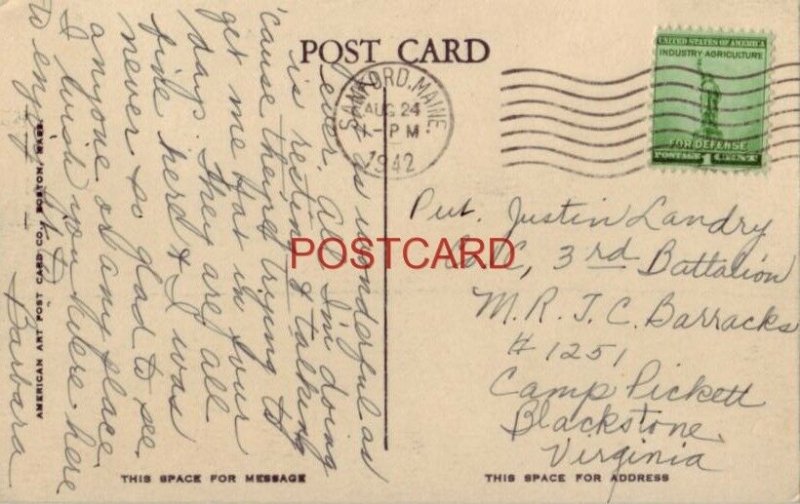 POST CARD
SANFORD, MAINE.
AUG 24
-PM
1942
UNITED STATES OF AMERICA
INDUSTRY AGRICULTURE
FOR DEFENSE
POSTAGE 1 CENT
is as wonderful as
ever. All I'm doing
is resting & talking
'cause they're trying to
get me fat in four
days. They are all
fine here & I was
never so glad to see
anyone or any place.
I wish you were here
to enjoy it
Barbara
Pvt. Justin Landry
Co. C, 3rd Battalion
M.R.T.C. Barracks
# 1251
Camp Pickett
Blackstone
Virginia
POSTCARD
AMERICAN ART POST CARD CO., BOSTON, MASS.
THIS SPACE FOR MESSAGE
THIS SPACE FOR ADDRESS